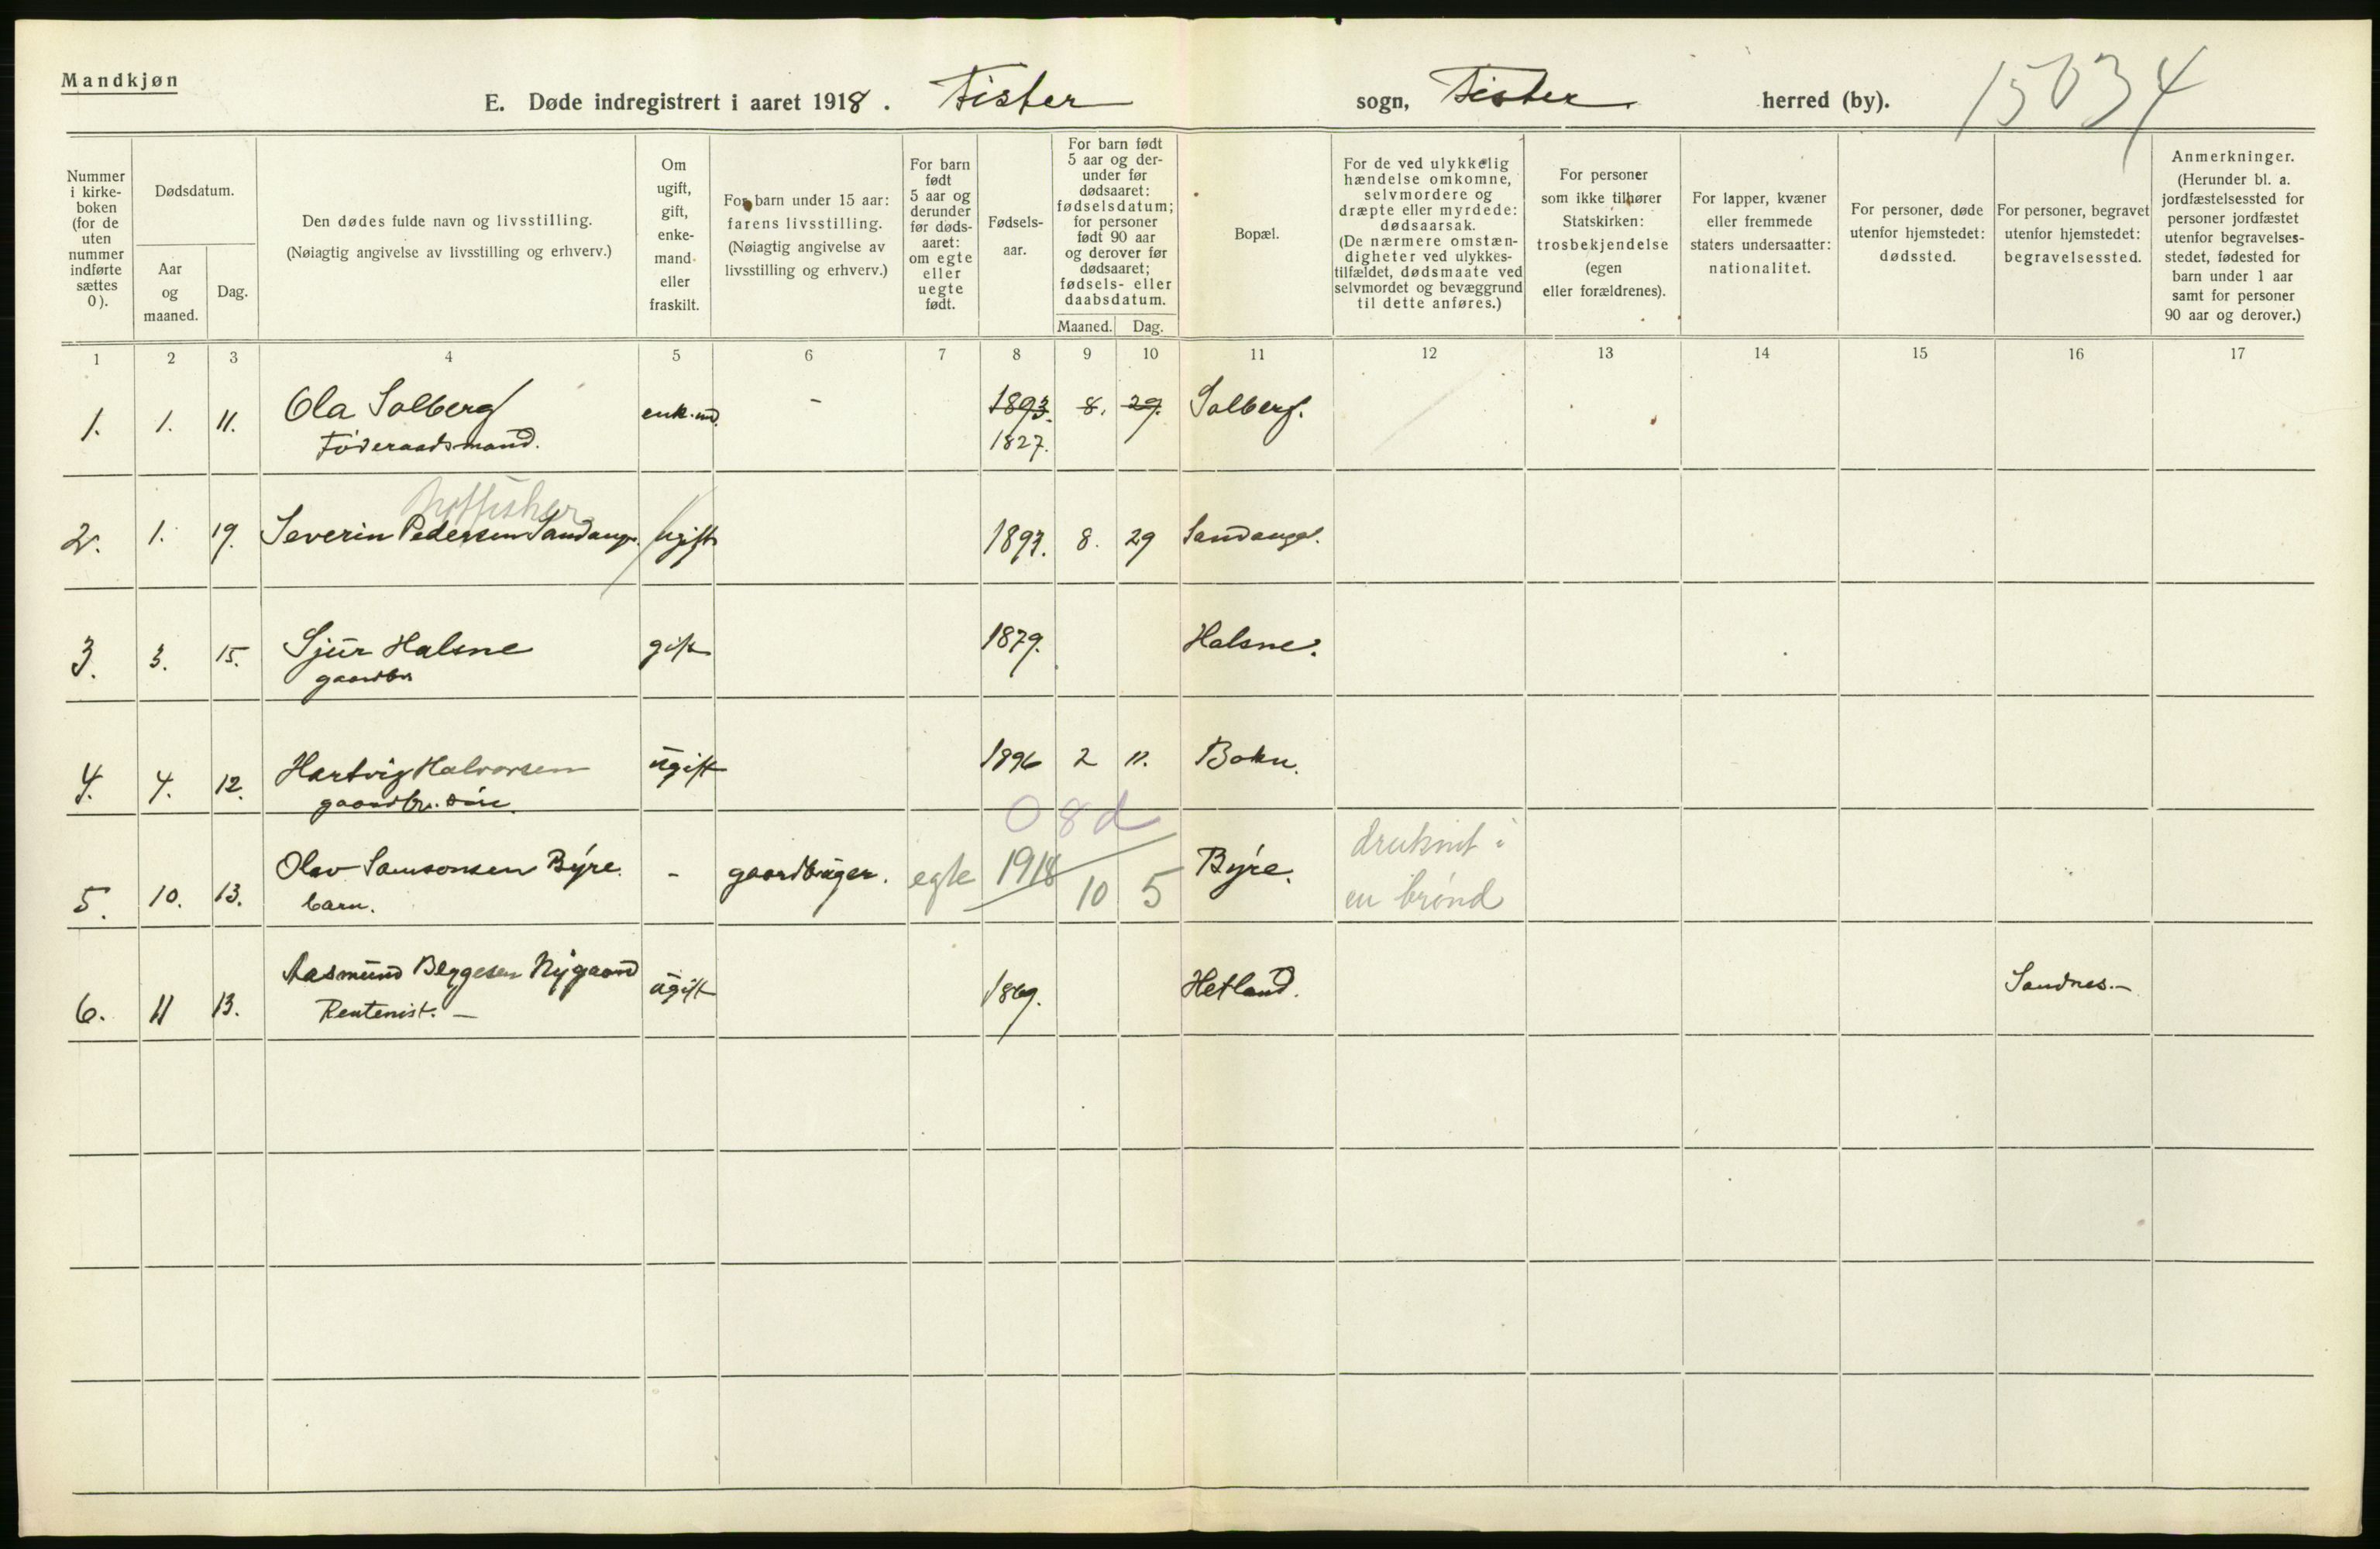 Mandkjøn
E. Døde indregistrert i aaret 1918. Fister sogn, Fister herred (by). 15034
Nummer i kirke-boken (for de uten nummer indførte sættes 0).
Dødsdatum.
Aar og maaned.
Dag.
Den dødes fulde navn og livsstilling.
(Nøiagtig angivelse av livsstilling og erhverv.)
Om ugift, gift, enke-mand eller fraskilt.
For barn under 15 aar: farens livsstilling.
(Nøiagtig angivelse av livsstilling og erhverv.)
For barn født 5 aar og derunder før døds-aaret: om egte eller uegte født.
Fødsels-aar.
For barn født 5 aar og der-under før dødsaaret: fødselsdatum; for personer født 90 aar og derover før dødsaaret; fødsels- eller daabsdatum.
Maaned. Dag.
Bopæl.
For de ved ulykkelig hændelse omkomne, selvmordere og dræpte eller myrdede: dødsaarsak.
(De nærmere omstæn-digheter ved ulykkes-tilfældet, dødsmaate ved selvmordet og bevæggrund til dette anføres.)
For personer som ikke tilhører Statskirken: trosbekjendelse (egen eller forældrenes).
For lapper, kvæner eller fremmede staters undersaatter: nationalitet.
For personer, døde utenfor hjemstedet: dødssted.
For personer, begravet utenfor hjemstedet: begravelsessted.
Anmerkninger.
(Herunder bl. a. jordfæstelsessted for personer jordfæstet utenfor begravelses-stedet, fødested for barn under 1 aar samt for personer 90 aar og derover.)
1 2 3 4 5 6 7 8 9 10 11 12 13 14 15 16 17
1. 1. 11. Ola Solberg enk.md. - 1893. 8. 29. Solberg.
Føderaadsmand. 1827.
2. 1. 19. Severin Pedersen Sandanger. ugift 1893. 8. 29 Sandanger.
3. 3. 15. Sjur Halsne gift 1879. Halsne.
gaardbr
4. 4. 12. Hartvig Halvorsen ugift 1896 2 11. Bokn.
gaardbr. søn.
08d
5. 10. 13. Olav Samsonsen Byre. - gaardbruger. egte 1918 10 5 Byre. druknet i
barn. en brønd
6. 11 13. Rasmund Beggesen Nygaard ugift 1869. Hetland. Sandnes.-
Rentenist. -